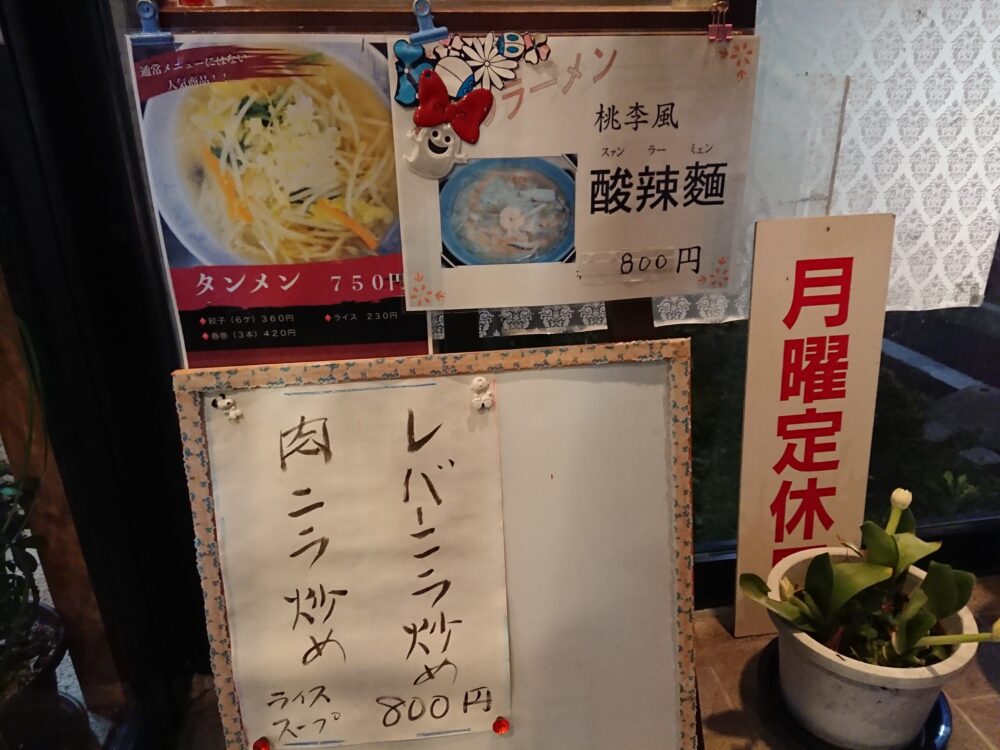 通常メニューにはない
人気商品！！
タンメン 750円
♦餃子（6ケ）360円 ♦ライス 230円
♦春巻（3本）420円
ラーメン
桃李風
スァン ラー ミェン
酸辣麵
800円
月曜定休
レバーニラ炒め
800円
肉ニラ炒め
ライス
スープ